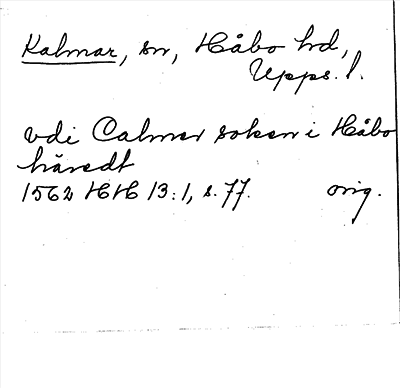 Kalmar, sn, Håbo hd,
Upps. l.
vdi Calmar soken i Håbo
häredt
1562 HH 13:1, s. 77. orig.